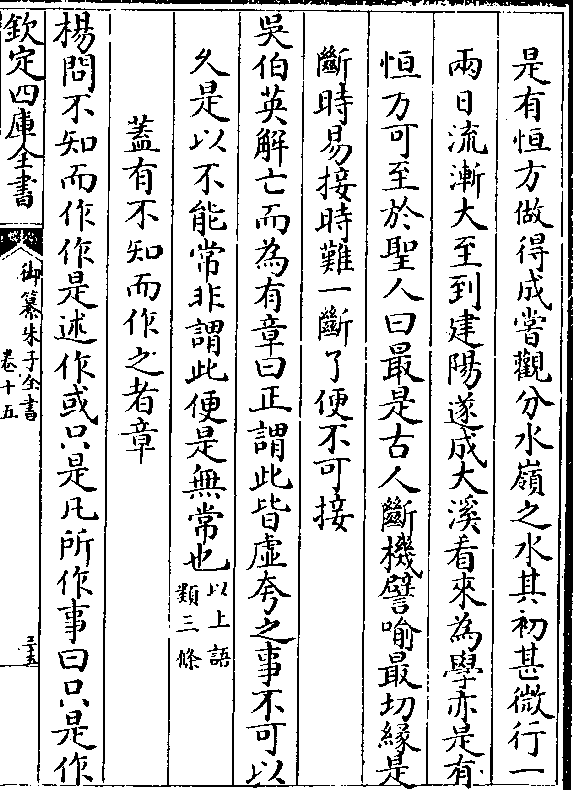 是有恒方做得成嘗觀分水嶺之水其初甚微行一
兩日流漸大至到建陽遂成大溪看來為學亦是有
恒方可至於聖人曰最是古人斷機譬喻最切緣是
斷時易接時難一斷了便不可接
吳伯英解亡而為有章曰正謂此皆虛夸之事不可以
久是以不能常非謂此便是無常也以上語
類三條
蓋有不知而作之者章
楊問不知而作作是述作或只是凡所作事曰只是作
欽定四庫全書
御纂朱子全書
卷十五
三五